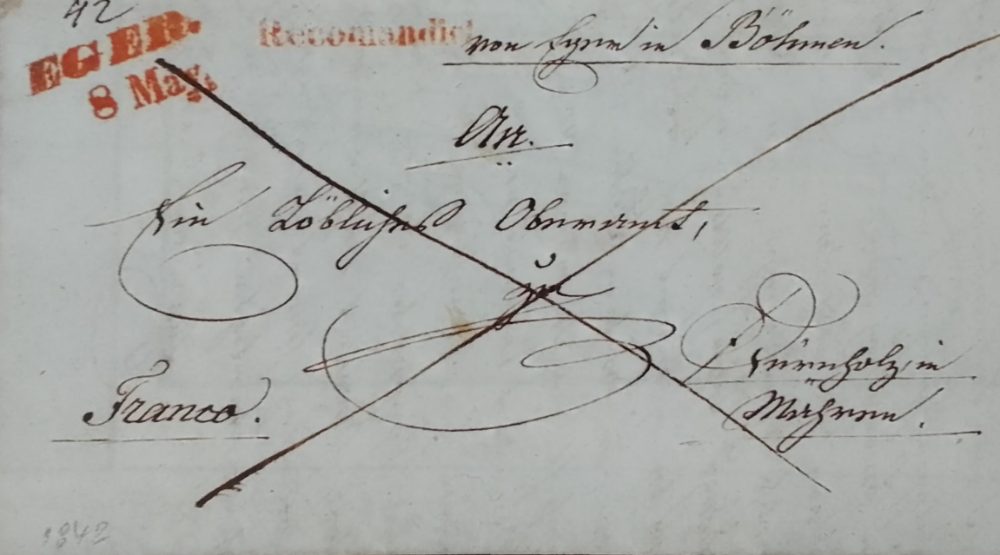 42
EGER.
8 May.
Recomandirt
von Eger in Böhmen.
An.
Ein Löbliches Oberamt,
zu
Dürnholz, in
Mähren.
Franco.
1842